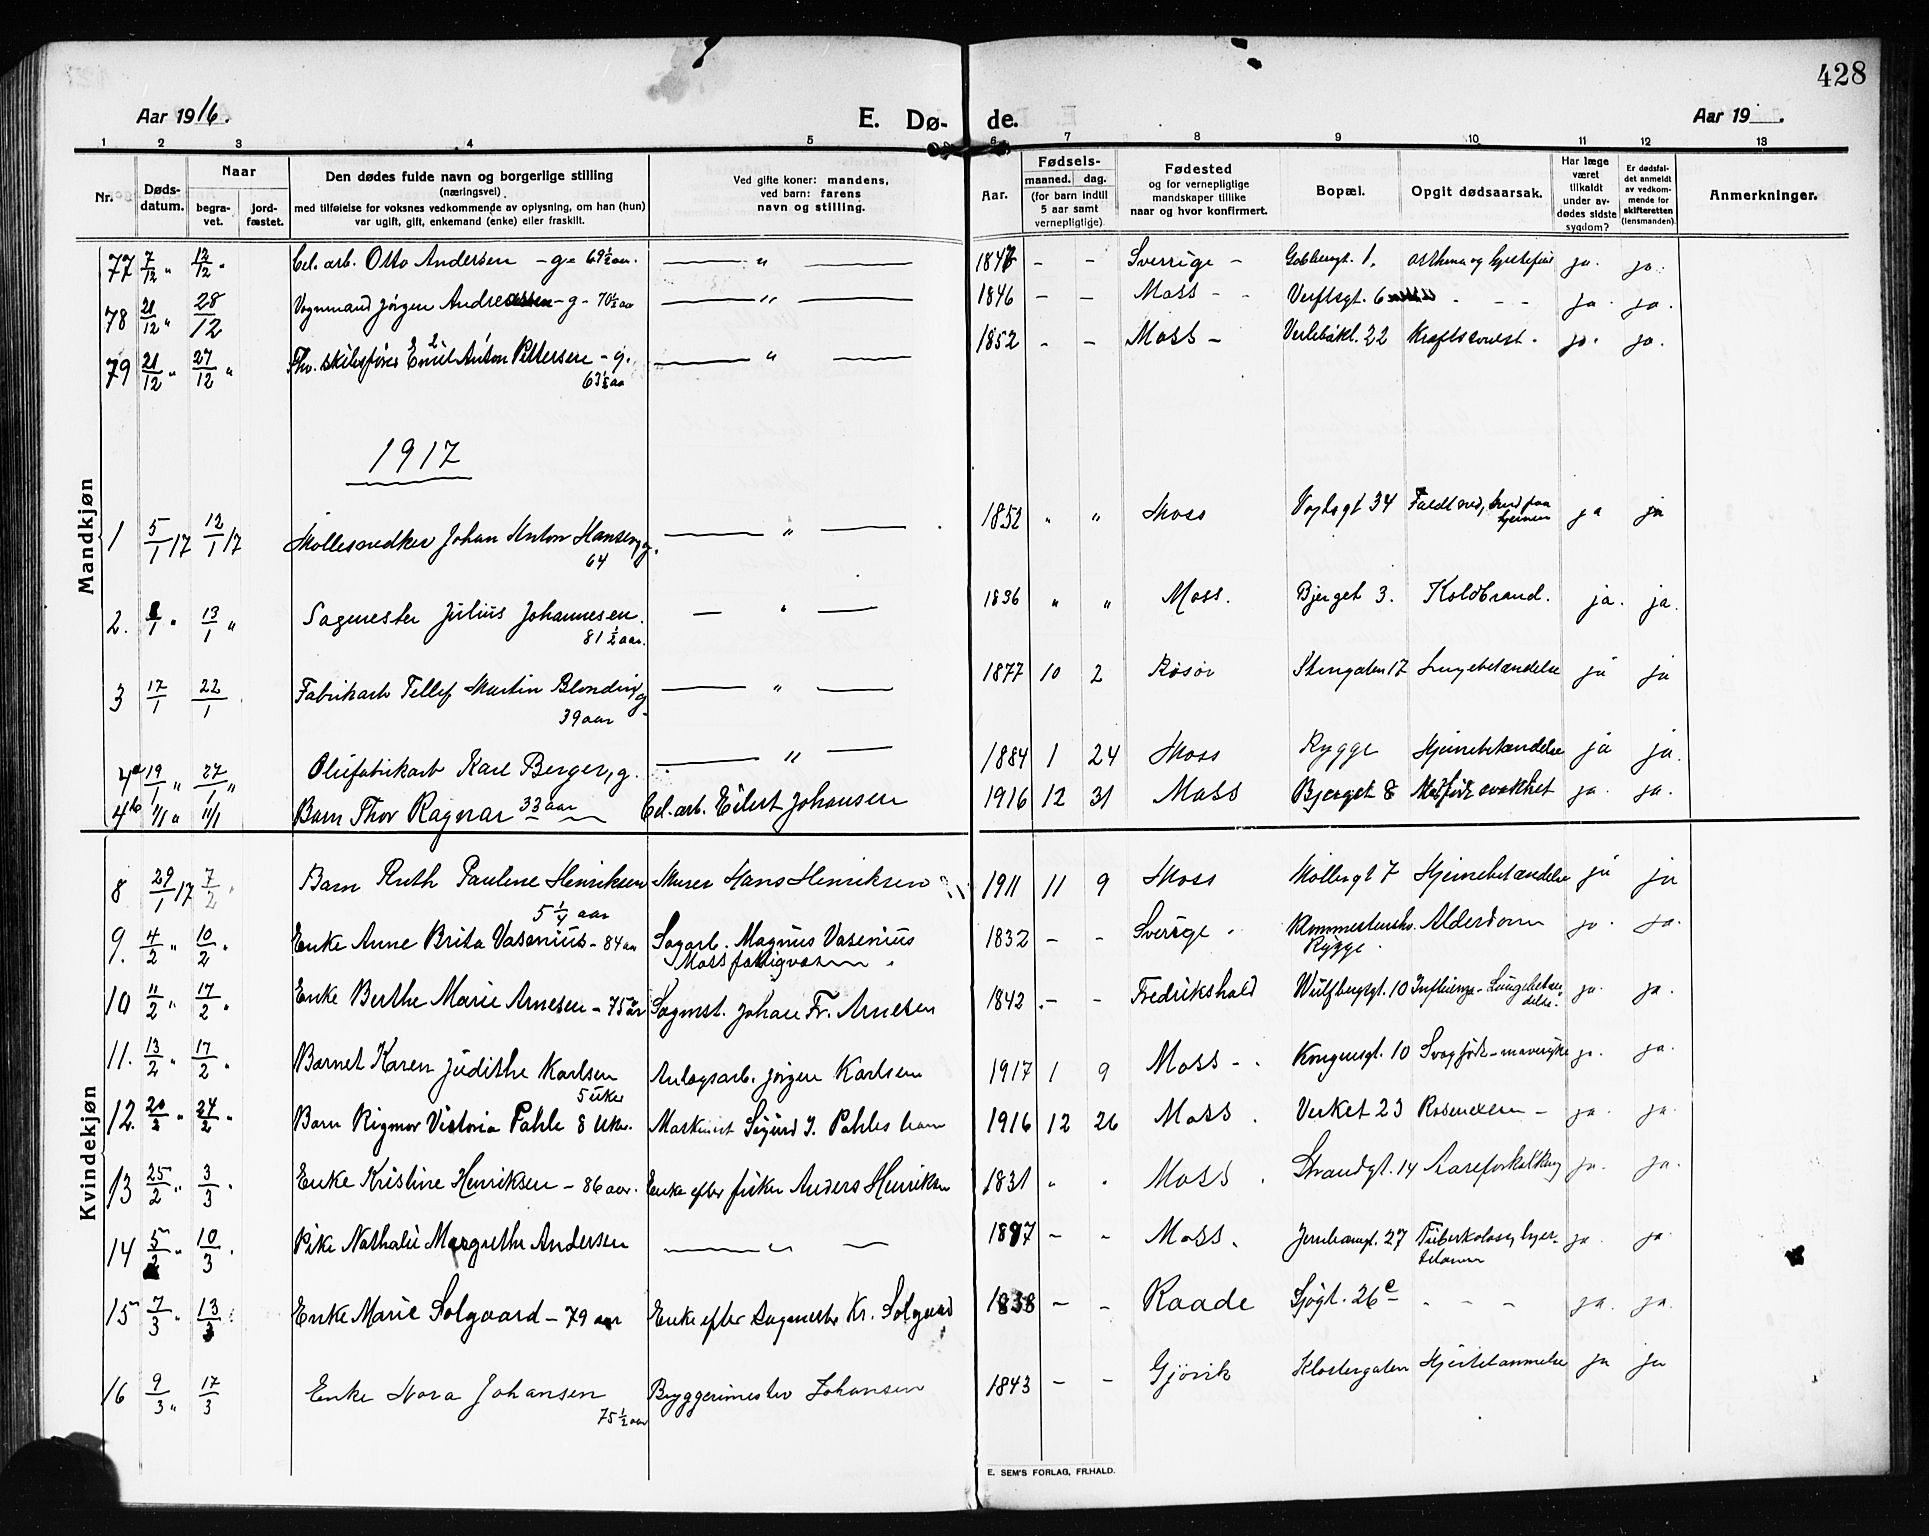 428
Aar 1916.
E. Dø- de.
Aar 19 .
1 2 3 4 5 6 7 8 9 10 11 12 13
Nr.
Døds-
datum.
Naar
begra-
vet.
jord-
fæstet.
Den dødes fulde navn og borgerlige stilling
(næringsvei)
med tilføielse for voksnes vedkommende av oplysning, om han (hun)
var ugift, gift, enkemand (enke) eller fraskilt.
Ved gifte koner: mandens,
ved barn: farens
navn og stilling.
Aar.
Fødsels-
maaned. dag.
(for barn indtil
5 aar samt
vernepligtige)
Fødested
og for vernepligtige
mandskaper tillike
naar og hvor konfirmert.
Bopæl.
Opgit dødsaarsak.
Har læge
været
tilkaldt
under av-
dødes sidste
sygdom?
Er dødsfal-
det anmeldt
av vedkom-
mende for
skifteretten
(lensmanden).
Anmerkninger.
Mandkjøn
77 7/12 " 12/12 " Cel. arb. Otto Andersen - g - 69½ aar. " 1847 - - Sverrige - 1. asthma og ja. ja.
78 21/12 " 28/12 Vognmand Jørgen - g - 70½ aar " 1846 - - Moss - - Verftsgt. 6 - - - ja. ja.
79 21/12 " 27/12 " Fhv. skibsfører Emil Anton Pettersen - g. " 1852 - - Moss - Verlebakl. 22 ja. ja.
63½ aar
1917
1 5/1 17 12/1 17 Møllesnedker Johan Anton Hansen, g. " 1852 " " Moss Vogtsgt 34 Faldt ned, ja ja
64
2. /1 " 13/1 " Sagmester Julius Johannesen. " 1836 " " Moss. Bjerget 3. Koldbrand. ja. ja.
81½ aar.
3 17/1 22/1 Fabrikarb Tellef Martin g " 1877 10 2 Risør Stengaten 17 Lungebetændelse ja ja
39 aar
4a 19/1 " 27/1 " Oliefabrikarb Karl Berger, g. " 1884 1 24 Moss Rygge Hjernebetændelse ja ja.
33 aar
4b 11/1 " 11/1 Barn Thor Ragnar Cel. arb. Eilert Johansen 1916 12 31 Moss Bjerget 8 Medfødt svakhet ja. ja.
Kvindekjøn
8 29/1 17 7/2 " Barn Ruth Pauline Henriksen Murer Hans Henriksen 1911 11 9 Moss Møllergt 7 Hjernebetændelse ja ja
5¼ aar
9. 4/2 " 10/2 " Enke Anne Brita Vasenius - 84 aar Sagarb. Magnus Vasenius 1832 - - Sverige. Alderdom ja. ja.
Moss fattigvæsen. Rygge.
10 11/2 " 17/2 " Enke Berthe Marie Arnesen - 75 aar Sagmst. Johan Fr. Arnesen 1842 - - Fredrikshald Wulfbergsgt. 10 Influenza - Lungebetæn- ja. ja.
delse.
11. 13/2 " 17/2 " Barnet Karen Judithe Karlsen Anlagsarb. Jørgen Karlsen 1917 1 9 Moss - . Kongensgt. 10 Svagfødt - mavesyke ja. ja.
5 uker
12. 20/2 " 24/2 " Barn Rigmor Victoria Pahle 8 uker. Maskinist Sigurd J. Pahles barn 1916 12 26 Moss. Verket 23 - ja. ja.
13 25/2 " 3/3 " Enke Kristine Henriksen - 86 aar. Enke efter fisker Anders Henriksen 1831 " " Moss. Strandgt. 14 Aareforkalkning ja. ja.
14 5/3 " 10/3 " Pike Nathalie Margrethe Andersen " 1897 - - Moss. Jernbanegt. 27 Tuberkolos ja. ja.
15 7/3 " 13/3 : Enke Marie Solgaard - 79 aar Enke efter sagmester Kr. Solgaard 1838 - - Raade Sjøgt. 26 c - - - ja. ja.
16 9/3 " 17/3 Enke Nora Johansen Bryggerimester Johansen 1843 - - Gjøvik Klostergaten Hjertelammelse ja ja
75½ aar
E. SEM'S FORLAG, FR.HALD.